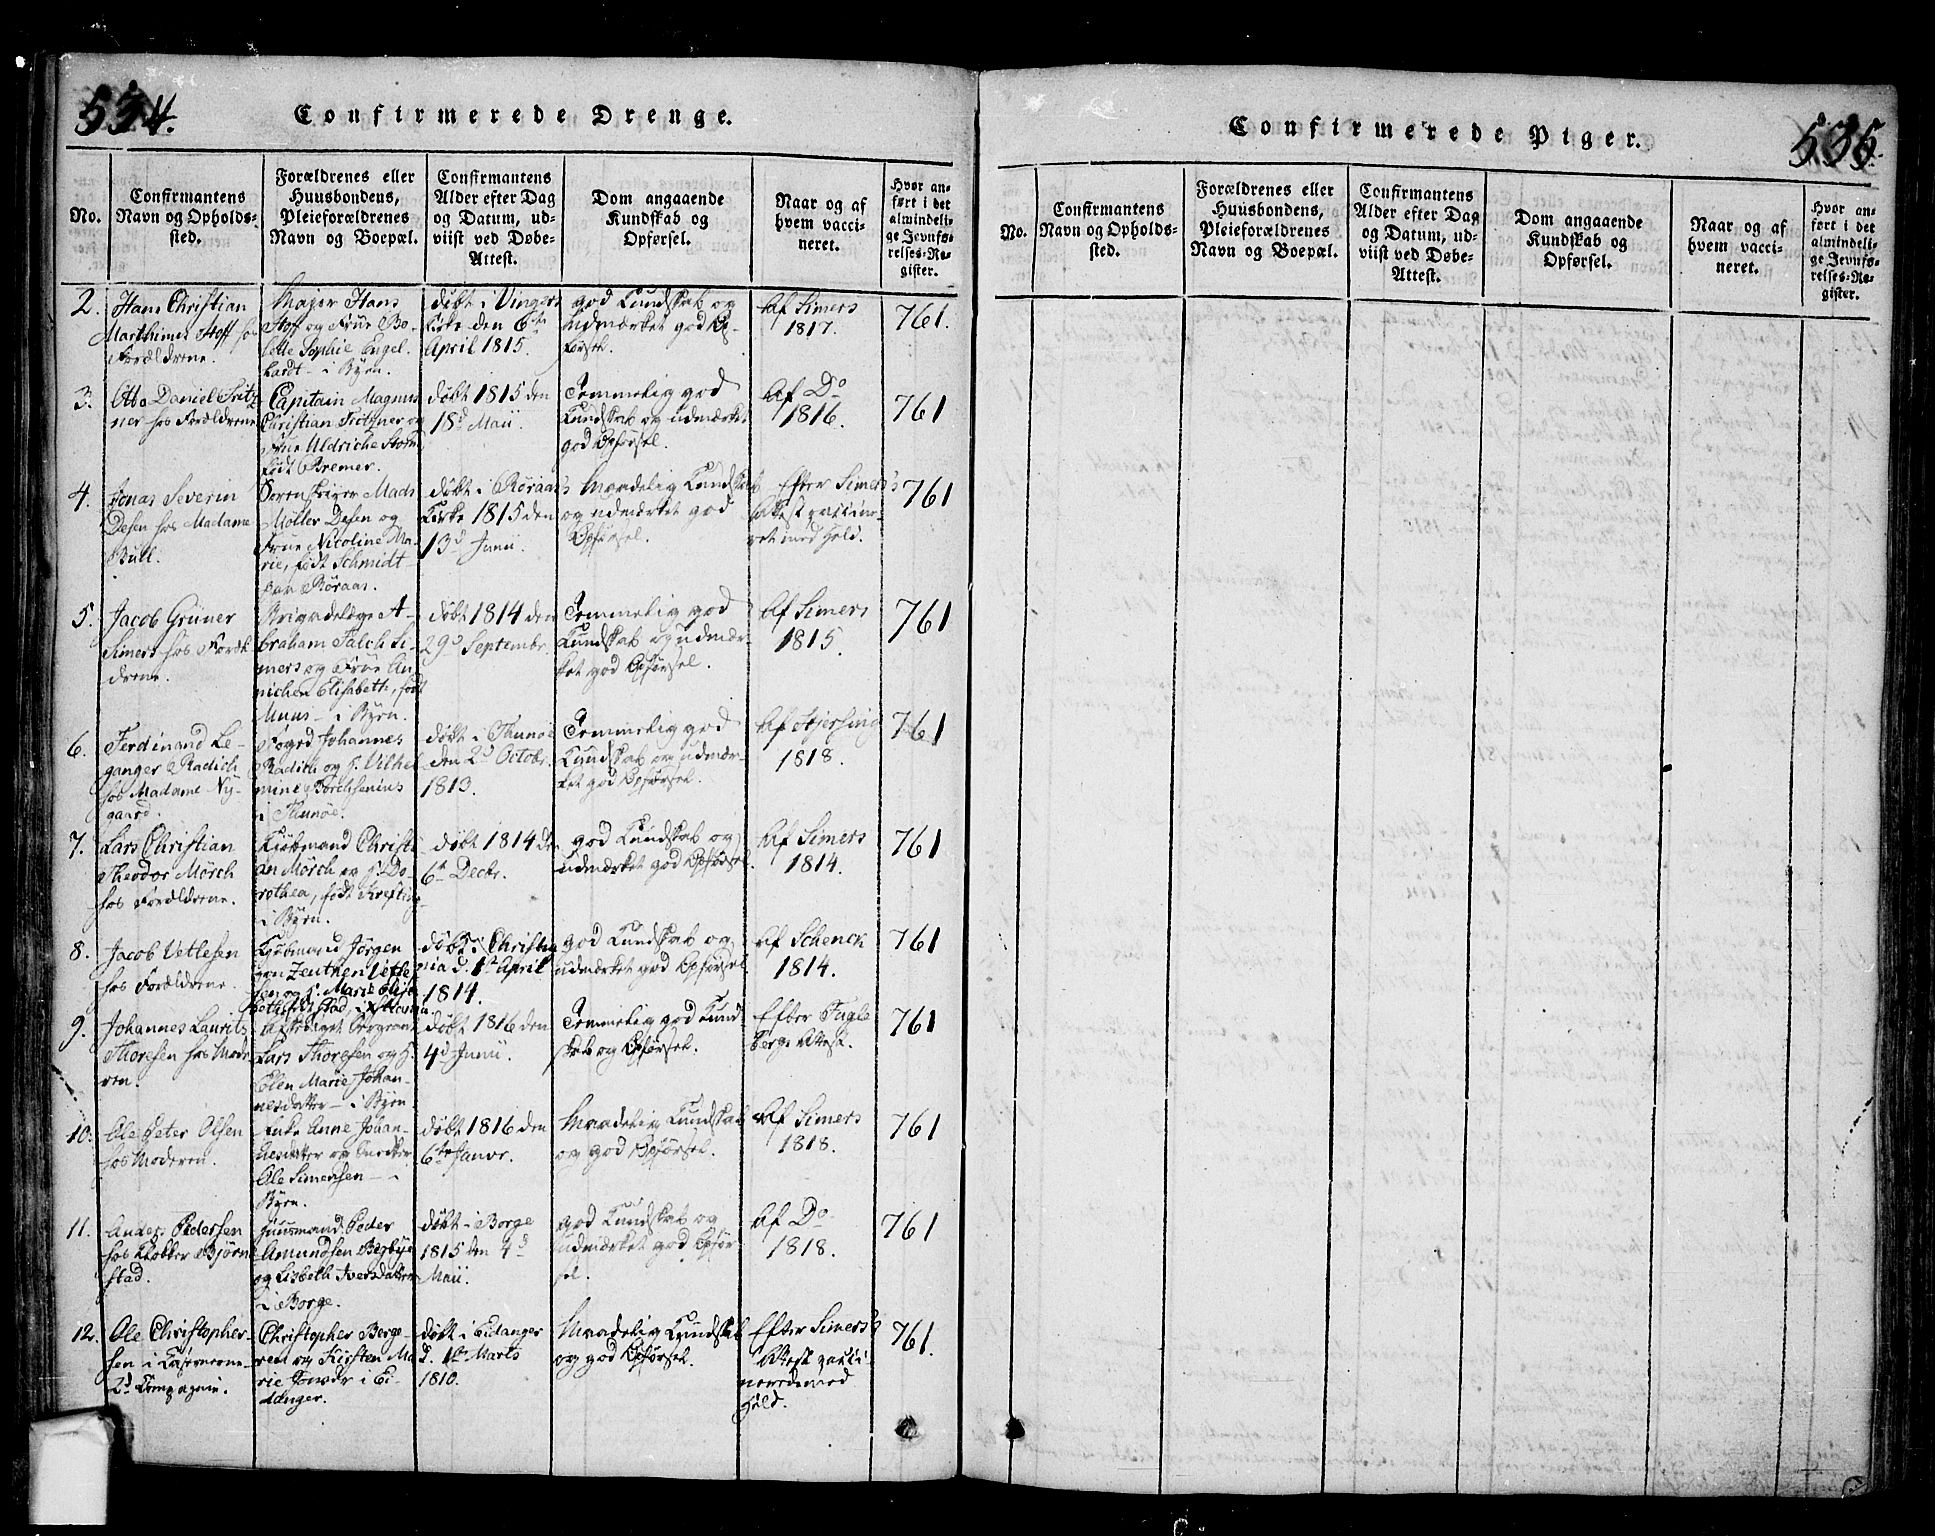 534.
Confirmerede Drenge.
No.
Confirmantens
Navn og Opholds-
sted.
Forældrenes eller
Huusbondens,
Pleieforældrenes
Navn og Boepæl.
Confirmantens
Alder efter Dag
og Datum, ud-
viist ved Døbe-
Attest.
Dom angaaende
Kundskab og
Opførsel.
Naar og af
hvem vacci-
neret.
Hvor an-
ført i det
almindeli-
ge Jevnfø-
relses-Re-
gister.
2.
Hans Christian
Marthinus Hoff hos
Forældrene.
Major Hans
Hoff og Frue Bo-
lette Sophie Engel-
hardt - i Byen.
døbt i Vingers
Kirke den 6te
April 1815
god Kundskab og
udmærket god Op-
førsel.
Af Simers
1817.
761.
3.
Otto Daniel Fritz-
ner hos Forældrene
Capitain Magnus
Christian Fritzner og
Frue Uldriche Storm
født Bremer.
døbt 1815 den
18d Maii.
Temmelig god
Kundskab og udmærket
god Opførsel.
Af Do
1816.
761
4.
Jonas Severin
Desen hos Madame
Bull.
Sorenskriver Mads
Møller Desen og
Frue Nicoline Ma-
rie, født Schmidt
paa Røraas.
døbt i Røraas's
Kirke 1815 den
13d Junii.
Maadelig Kundskab
og udmærket god
Opførsel.
Efter Simers's
Attest vaccine-
ret med Held.
761
5.
Jacob Grüner
Simers hos Foræl-
drene.
Brigadelæge A-
braham Falch Si-
mers og Frue An-
nichen Elisabeth, født
Muus - i Byen.
døbt 1814 den
29d Septembr.
Temmelig god
Kundskab og udmær-
ket god Opførsel.
Af Simers
1815.
761
6.
Ferdinand Le-
ganger Radich
hos Madame Ny-
gaard.
Foged Johannes
Radich og F. Vilhel-
mine Borchsenius
i Thunøe.
døbt i Thunøe
den 2d Octobr.
1813.
Temmelig god
Kundskab og udmær-
ket god Opførsel.
Af Stjersing
1818.
761
7.
Lars Christian
Theodor Mörch
hos Forældrene.
Kjøbmand Christi-
an Mörch og F. Do-
rothea, født
i Byen.
døbt 1814 den
6te Decbr.
god Kundskab og
udmærket god Opførsel.
Af Simers
1814.
761
8.
Jacob Vetlesen
hos Forældrene.
Kjøbmand Jörgen
von Zeuthen Vetle-
sen og F. Marie Elisa-
beth, født Stad, i
døbt i Christia-
nia d. 1te April
1814.
god Kundskab og
udmærket god Opførsel.
Af Schenck
1814.
761
9.
Johannes Laurits
Thoresen hos Mode-
ren.
Lars Thoresen og F.
Ellen Marie Johan-
nesdatter - i Byen.
døbt 1816 den
4d Junii.
Temmelig god Kund-
skab og Opførsel.
Efter Fugle-
bergs Attest.
761
10.
Ole Peter Olsen
hos Moderen.
Enke Anne Johan-
nesdatter og Snedker
Ole Simensen - i
Byen.
døbt 1816 den
6te Janvr.
Maadelig Kundskab
og god Opførsel.
Af Simers
1818.
761
11.
Anders Pedersen
hos Klokker Bjørn-
stad.
Huusmand Peder
Amundsen Begbye
og Lisbeth Iversdatter
i Borge.
døbt i Borge
1815 den 4d
Maii.
god Kundskab og
udmærket god Opfør-
sel.
Af Do
1818.
761
12.
Ole Christopher-
sen i Casernerne
2d Compagnie.
Christopher Berge-
ren og Kirsten Ma-
rie i Ei-
danger.
døbt i Eidanger
d. 1te Marts
1810.
Maadelig Kundskab
og god Opførsel.
Efter Simers's
Attest vacci-
neret med
Held.
761.
535
Confirmerede Piger.
No.
Confirmantens
Navn og Opholds-
sted.
Forældrenes eller
Huusbondens,
Pleieforældrenes
Navn og Boepæl.
Confirmantens
Alder efter Dag
og Datum, ud-
viist ved Døbe-
Attest.
Dom angaaende
Kundskab og
Opførsel.
Naar og af
hvem vacci-
neret.
Hvor an-
ført i det
almindeli-
ge Jevnfø-
relses-Re-
gister.